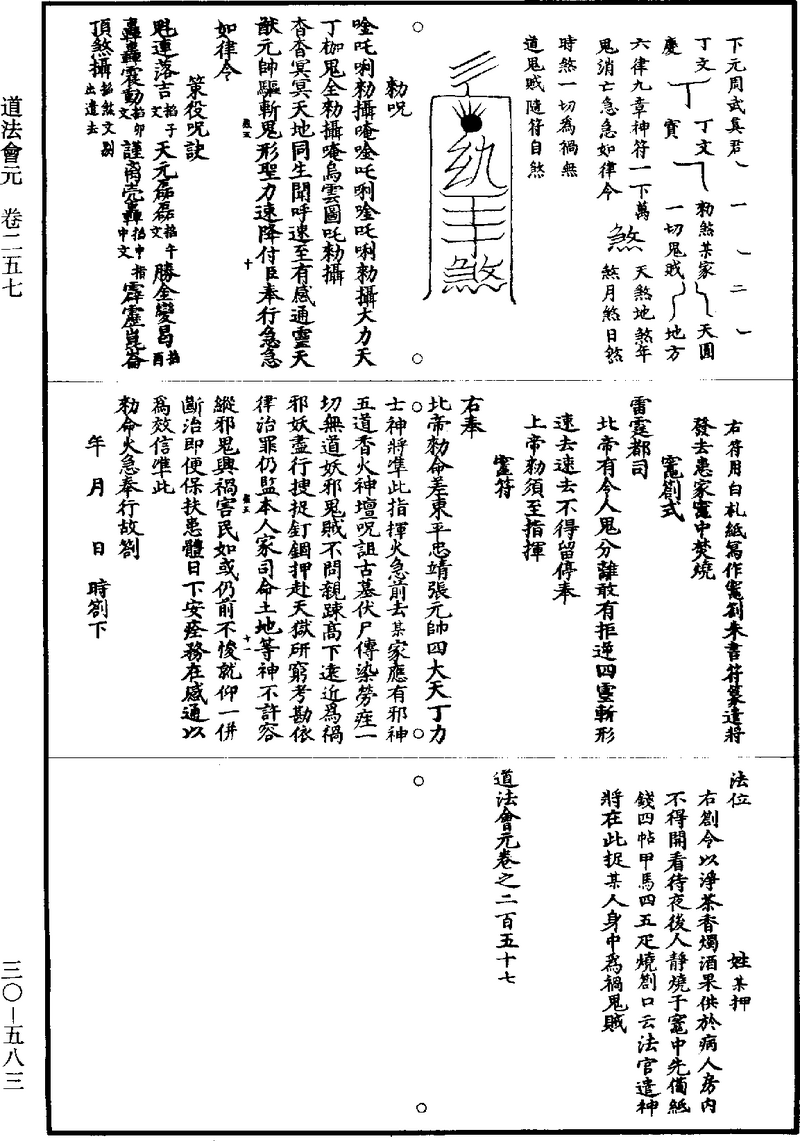 下元周武真君、 一 、 二 、
丁文 丁文 勑煞某家 天圓
慶 賓 一切鬼賊 地方
六律九章神符一下萬 天煞地煞年
鬼消亡急急如律令 煞 煞月煞日煞
時煞一切為禍無
道鬼賊隨符自煞
勑呪
唵吒唎勑攝唵唵吒唎唵吒唎勑攝大力天
丁枷鬼全勑攝唵烏雲圖吒勑攝
杳杳冥冥天地同生聞呼速至有感通靈天
猷元帥驅斬鬼形聖力速降付臣奉行急急
如律令
策役呪訣
魁連落吉掐子文天元磊磊掐午文勝全變曷掐酉
轟轟震動掐卯文謹裔壳轟掐中指中文霹靂崑崙
頂煞攝掐煞文剔出遣去
右符用白札紙寫作竈劄朱書符篆遣將
發去患家竈中焚燒
竈劄式
雷霆都司
北帝有令人鬼分離敢有拒逆四靈斬形
速去速去不得留停奉
上帝勑須至指揮
竈符
右奉
北帝勑命差東平忠靖張元帥四大天丁力
士神將準此指揮火急前去某家應有邪神
五道香火神壇呪詛古墓伏尸傳染勞疰一
切無道妖邪鬼賊不問親踈高下遠近為禍
邪妖盡行搜捉釘錮押赴天獄研窮考勘依
律治罪仍監本人家司命土地等神不許容
縱邪鬼興禍害民如或仍前不悛就仰一併
斷治即便保扶患體日下安痊務在感通以
為效信準此
勑命火急奉行故劄
年 月 日 時劄下
法位 姓某押
右劄令以淨茶香燭酒果供於病人房内
不得開看待夜後人靜燒于竈中先備紙
錢四帖甲馬四五疋燒劄口云法官遣神
將在此捉某人身中為禍鬼賊
道法會元卷之二百五十七
道法會元 卷二五七
三〇－五八三